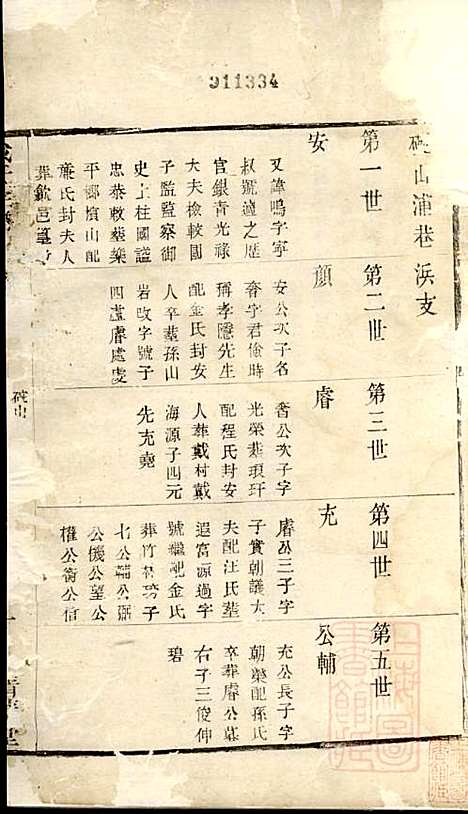 911334
碗山浦巷浜支
第一世
安
又諱鳴字寧
叔號適之歷
官銀青光祿
大夫檢較國
子監監察御
史上柱國諡
忠恭敕塟樂
平鄉嬪山配
龔氏封夫人
葬歙邑
第二世
顏
安公次子名
奢字君儉時
稱孝隱先生
配金氏封安
人卒塟孫山
岩改字號子
四虛睿處虔
第三世
睿
奢公次子字
光榮塟琅玕
配程氏封安
人葬戴村戴
海源子四元
先充堯
第四世
充
睿公三子字
子實朝議大
夫配汪氏塟
遐富源過字
號繼配金氏
葬竹林塝子
七公輔公弼
公儀公望公
權公衡公信
第五世
公輔
充公長子字
朝榮配孫氏
卒葬睿公墓
右子三俊伸
碧
碗山
上海圖書館藏